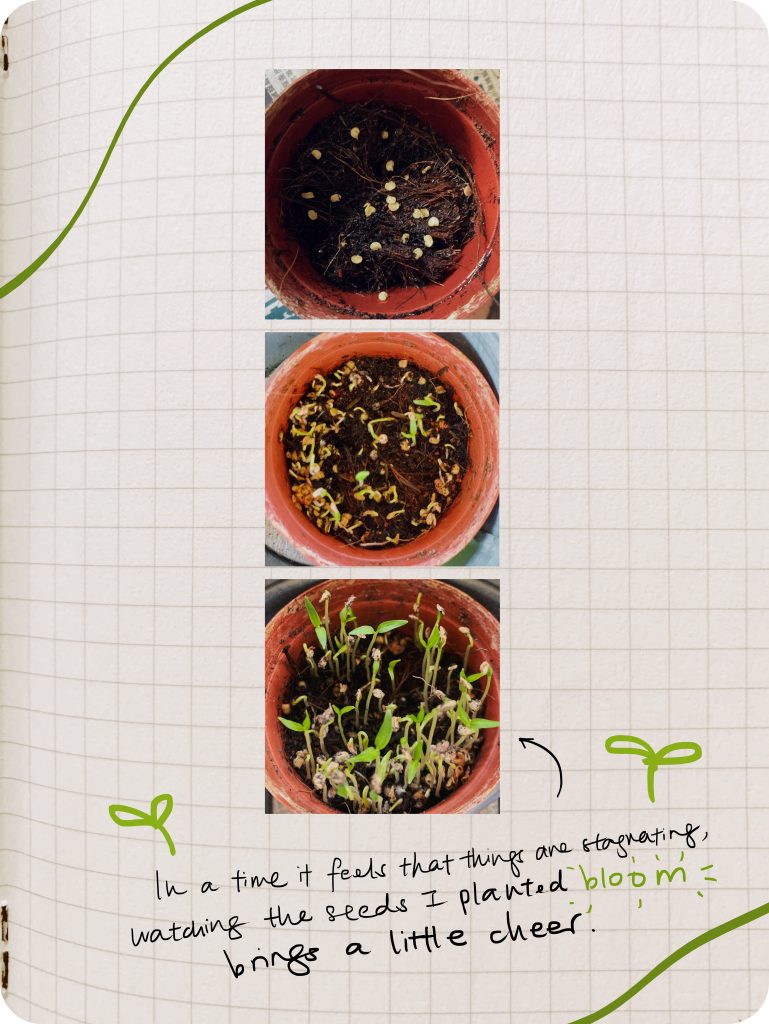 In a time it feels that things are stagnating,
watching the seeds I planted bloom
brings a little cheer.